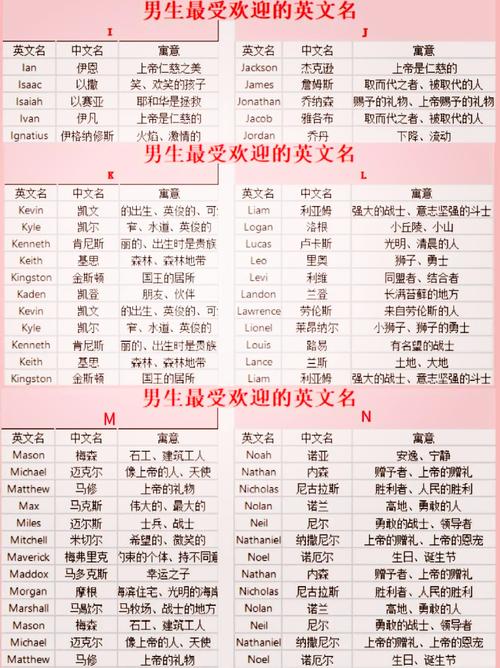 男生最受欢迎的英文名
I
英文名 中文名 寓意
Ian 伊恩 上帝仁慈之美
Isaac 以撒 笑、欢笑的孩子
Isaiah 以赛亚 耶和华是拯救
Ivan 伊凡 上帝是仁慈的
Ignatius 伊格纳修斯 火焰、激情的
J
英文名 中文名 寓意
Jackson 杰克逊 上帝是仁慈的
James 詹姆斯 取而代之者、被取代的人
Jonathan 乔纳森 赐予的礼物、上帝赐予的礼物
Jacob 雅各布 取而代之者、被取代的人
Jordan 乔丹 下降、流动
男生最受欢迎的英文名
K
英文名 中文名 寓意
Kevin 凯文 的出生、英俊的、可
Kyle 凯尔 窄、水道、英俊的
Kenneth 肯尼斯 丽的、出生时是贵族
Keith 基思 森林、森林地带
Kingston 金斯顿 国王的居所
Kaden 凯登 朋友、伙伴
Kevin 凯文 的出生、英俊的、可
Kyle 凯尔 窄、水道、英俊的
Kenneth 肯尼斯 丽的、出生时是贵族
Keith 基思 森林、森林地带
Kingston 金斯顿 国王的居所
L
英文名 中文名 寓意
Liam 利亚姆 强大的战士、意志坚强的斗士
Logan 洛根 小丘陵、小山
Lucas 卢卡斯 光明、清晨的人
Leo 里奥 狮子、勇士
Levi 利维 同盟者、结合者
Landon 兰登 长满苔藓的地方
Lawrence 劳伦斯 来自劳伦斯的人
Lionel 莱昂纳尔 小狮子、狮子的勇士
Louis 路易 有名望的战士
Lance 兰斯 土地、大地
Liam 利亚姆 强大的战士、意志坚强的斗士
男生最受欢迎的英文名
M
英文名 中文名 寓意
Mason 梅森 石工、建筑工人
Michael 迈克尔 像上帝的人、天使
Matthew 马修 上帝的礼物
Max 马克斯 伟大的、最大的
Miles 迈尔斯 士兵、战士
Mitchell 米切尔 希望的、微笑的
Maverick 梅弗里克 约束的个体、持不同意
Maddox 马多克斯 幸运之子
Morgan 摩根 海滨住宅、光明的海
Marshall 马歇尔 马牧场、战士的地方
Mason 梅森 石工、建筑工人
Michael 迈克尔 像上帝的人、天使
Matthew 马修 上帝的礼物
N
英文名 中文名 寓意
Noah 诺亚 安逸、宁静
Nathan 内森 赠予者、上帝的赠礼
Nicholas 尼古拉斯 胜利者、人民的胜利
Nolan 诺兰 高地、勇敢的人
Neil 尼尔 勇敢的战士、领导者
Nathaniel 纳撒尼尔 上帝的赠礼、上帝的恩宠
Noel 诺厄尔 生日、诞生节
Nathan 内森 赠予者、上帝的赠礼
Nicholas 尼古拉斯 胜利者、人民的胜利
Nolan 诺兰 高地、勇敢的人
Neil 尼尔 勇敢的战士、领导者
Nathaniel 纳撒尼尔 上帝的赠礼、上帝的恩宠
Noel 诺厄尔 生日、诞生节